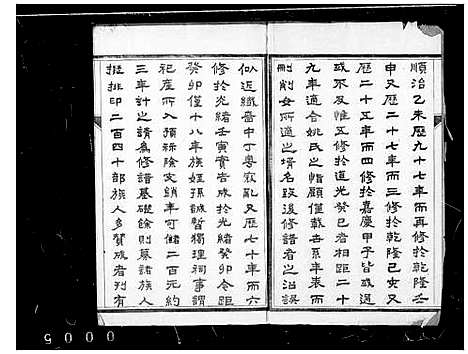 順治乙未歷九十七年而再修於乾隆壬
申又歷二十七年而三修於乾隆己亥又
歷二十五年而四修於嘉慶甲子皆或過
或不及惟五修於道光癸巳者相距二十
九年適合姚氏之惟顧僅載世系年表而
刪削女所適之壻名致後修譜者之沿誤
似近纖嗇中丁粵寇亂又歷七十年而六
修於光緒壬寅實告成於光緒癸卯今距
癸卯僅十八年族姪孫誠哲獨理祠事謂
祀產所入預祘除支銷年可儲二百元約
三年計之請為修譜基礎餘則募諸族人
挺排印二百四十部族人多贊成者刊有
0005